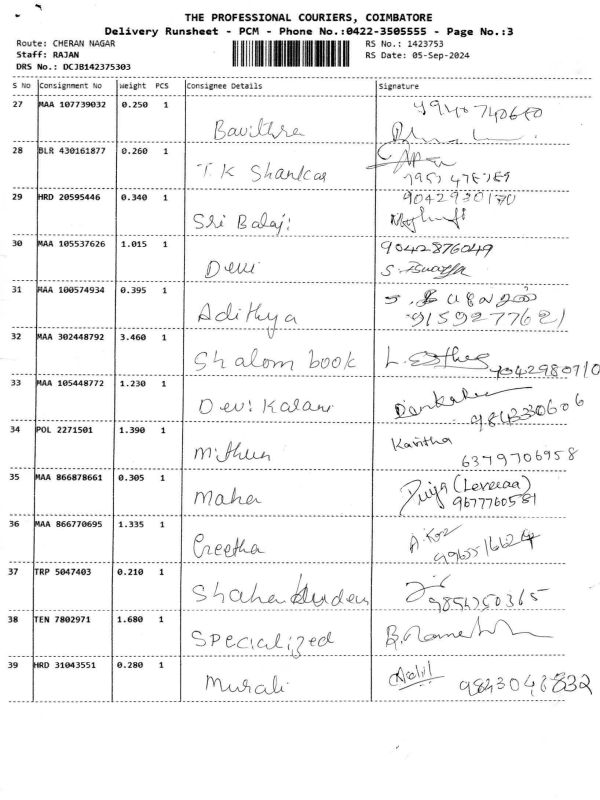 THE PROFESSIONAL COURIERS, COIMBATORE
Delivery Runsheet - PCM - Phone No.:0422-3505555 - Page No.:3
Route: CHERAN NAGAR RS No.: 1423753
Staff: RAJAN RS Date: 05-Sep-2024
DRS No.: DCJB142375303
S No Consignment No Weight PCS Consignee Details Signature
27 MAA 107739032 0.250 1
Bavithra
28 BLR 430161877 0.260 1
T.K Shankar
29 HRD 20595446 0.340 1 9042930170
Sri Balaji
30 MAA 105537626 1.015 1 9042876049
Devi
31 MAA 100574934 0.395 1
Adithya 9159277621
32 MAA 302448792 3.460 1
Shalom book L. Esther 9042980710
33 MAA 105448772 1.230 1
Devi Kalani 9843330606
34 POL 2271501 1.390 1 Kavitha
Mithun 6379706958
35 MAA 866878661 0.305 1 Priya
Maha 9677760581
36 MAA 866770695 1.335 1
Geetha
37 TRP 5047403 0.210 1
9854250365
38 TEN 7802971 1.680 1
Specialized B. Ramesh
39 HRD 31043551 0.280 1
Murali 9843046832